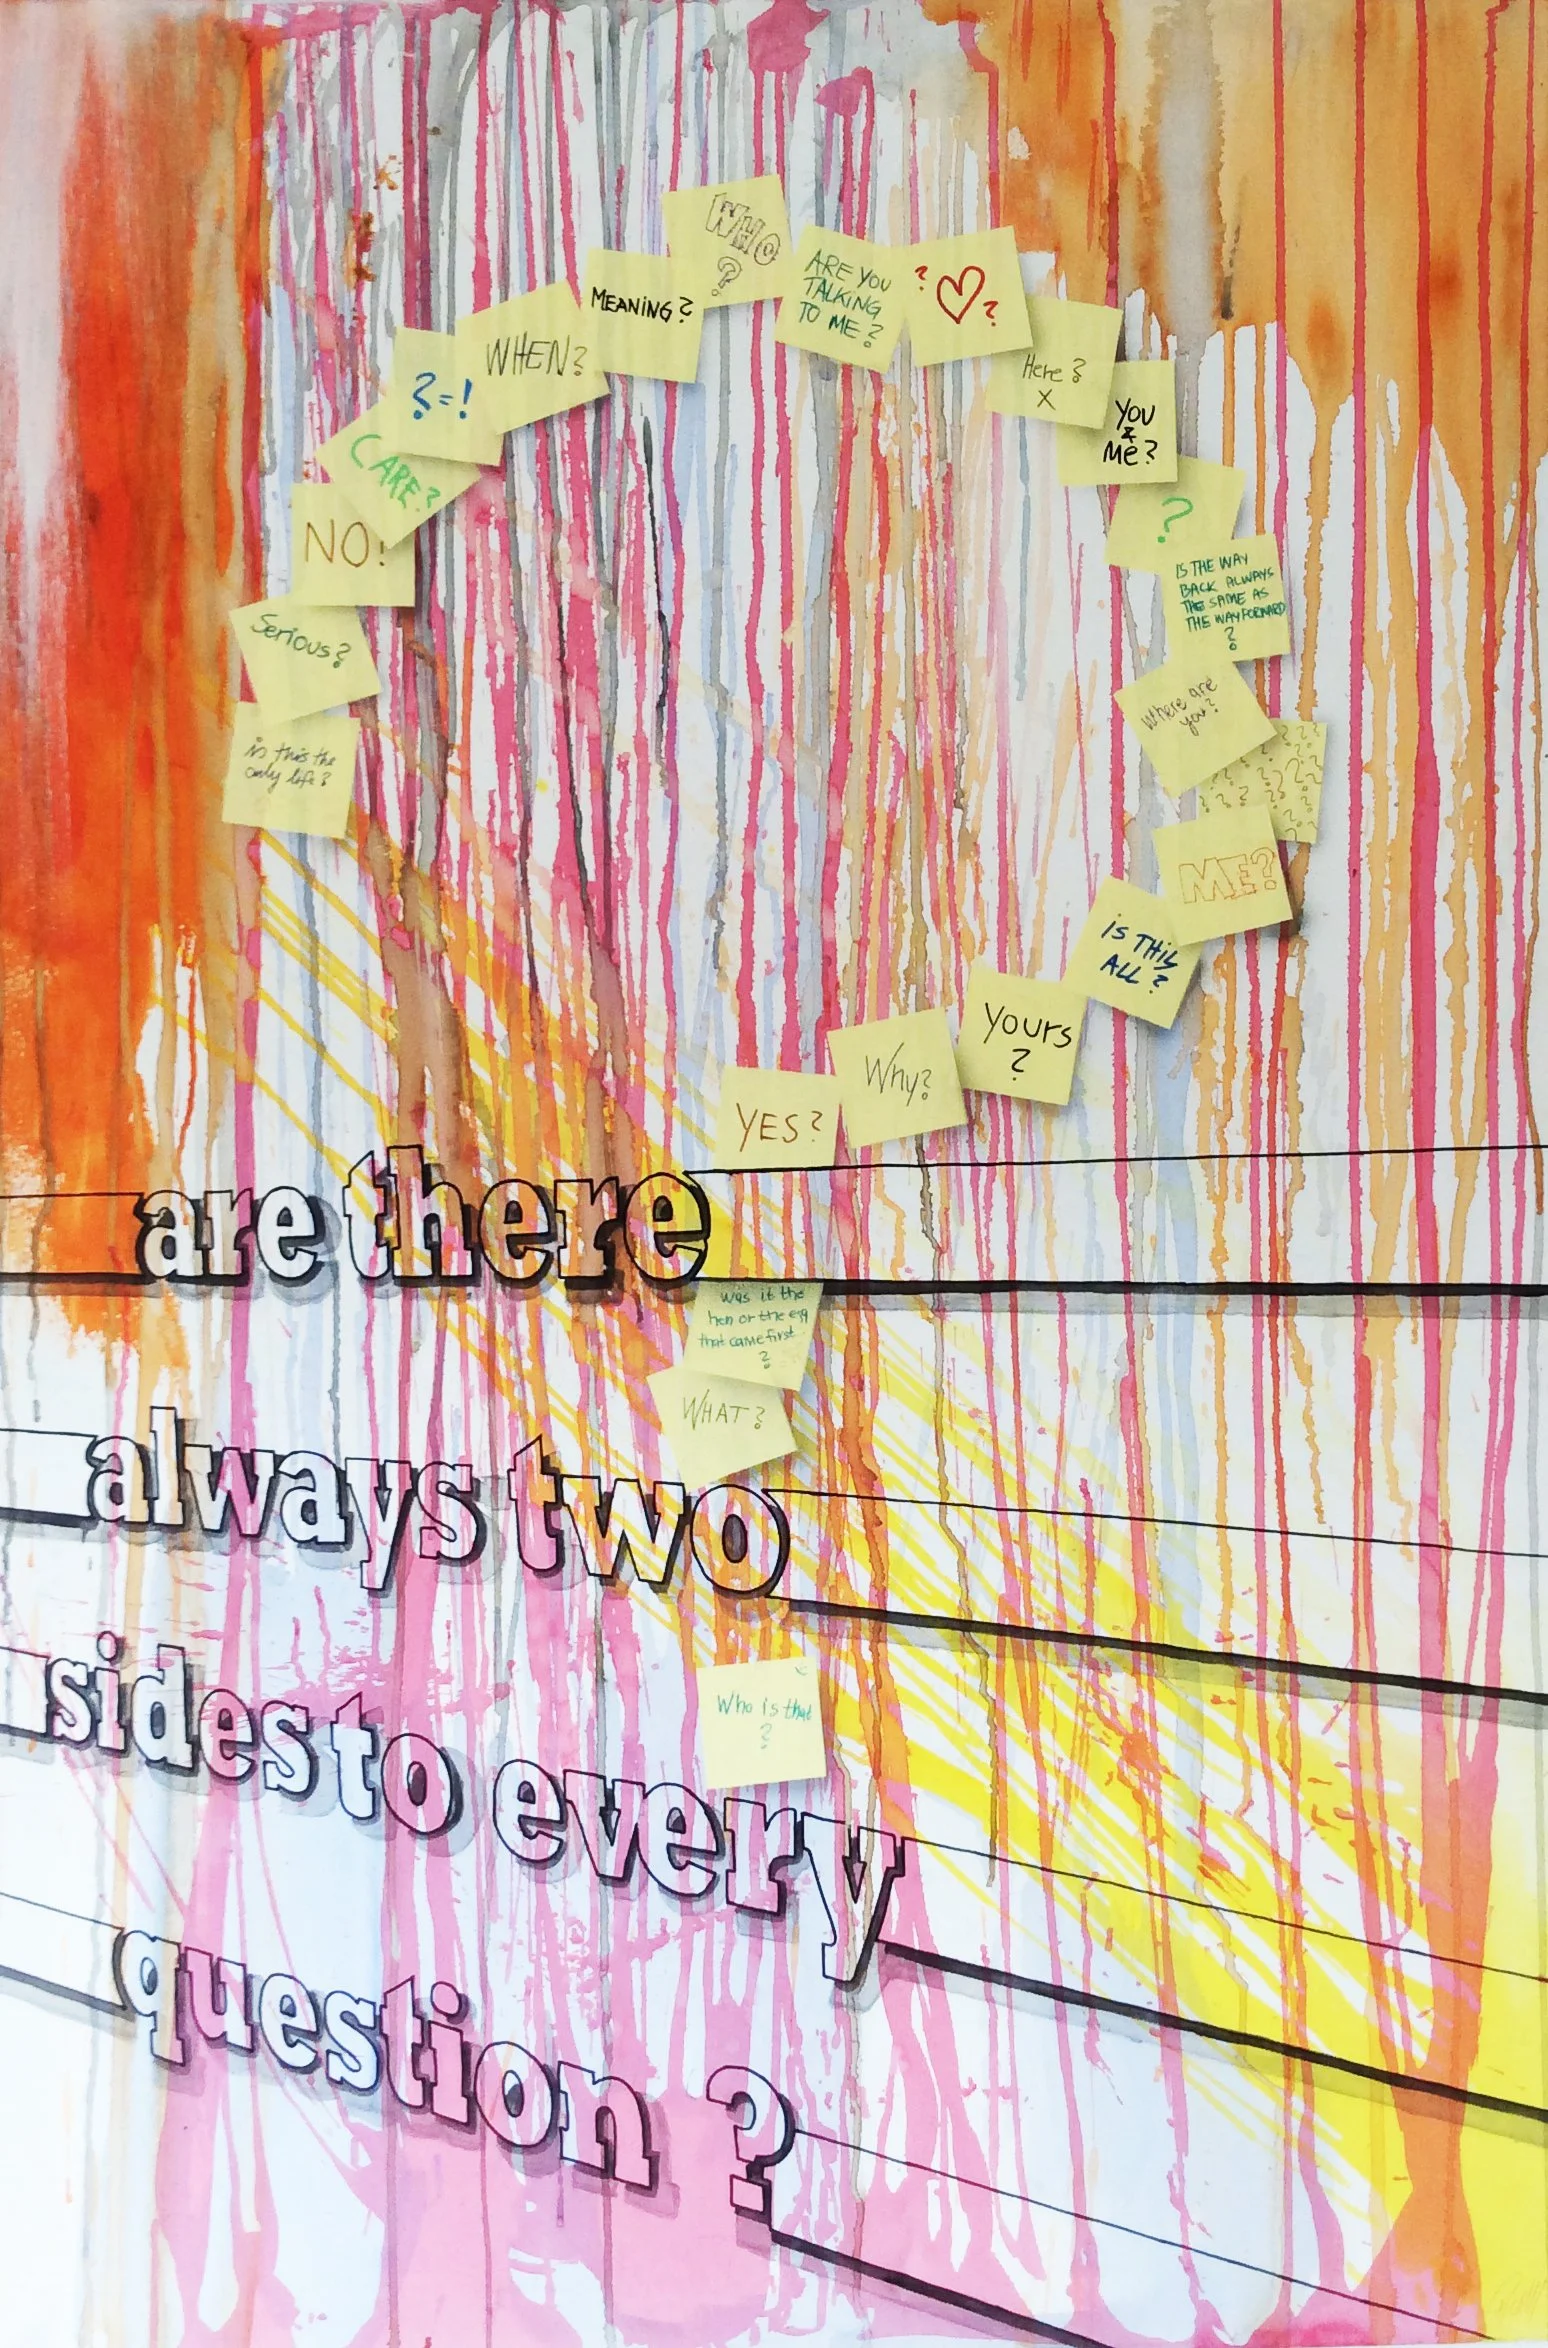 is this the
only life?
Serious?
NO!
CARE?
?=!
WHEN?
MEANING?
WHO
?
ARE YOU
TALKING
TO ME?
? ♡ ?
Here?
X
YOU
&
Me?
?
IS THE WAY
BACK ALWAYS
THE SAME AS
THE WAY FORWARD
?
Where are
you?
? ? ? ? ? ? ? ? ? ? ? ? ? ? ? ?
ME?
iS THiS
ALL?
Yours
?
Why?
YES?
are there
was it the
hen or the egg
that came first
?
WHAT?
always two
Who is that
?
sides to every
question ?